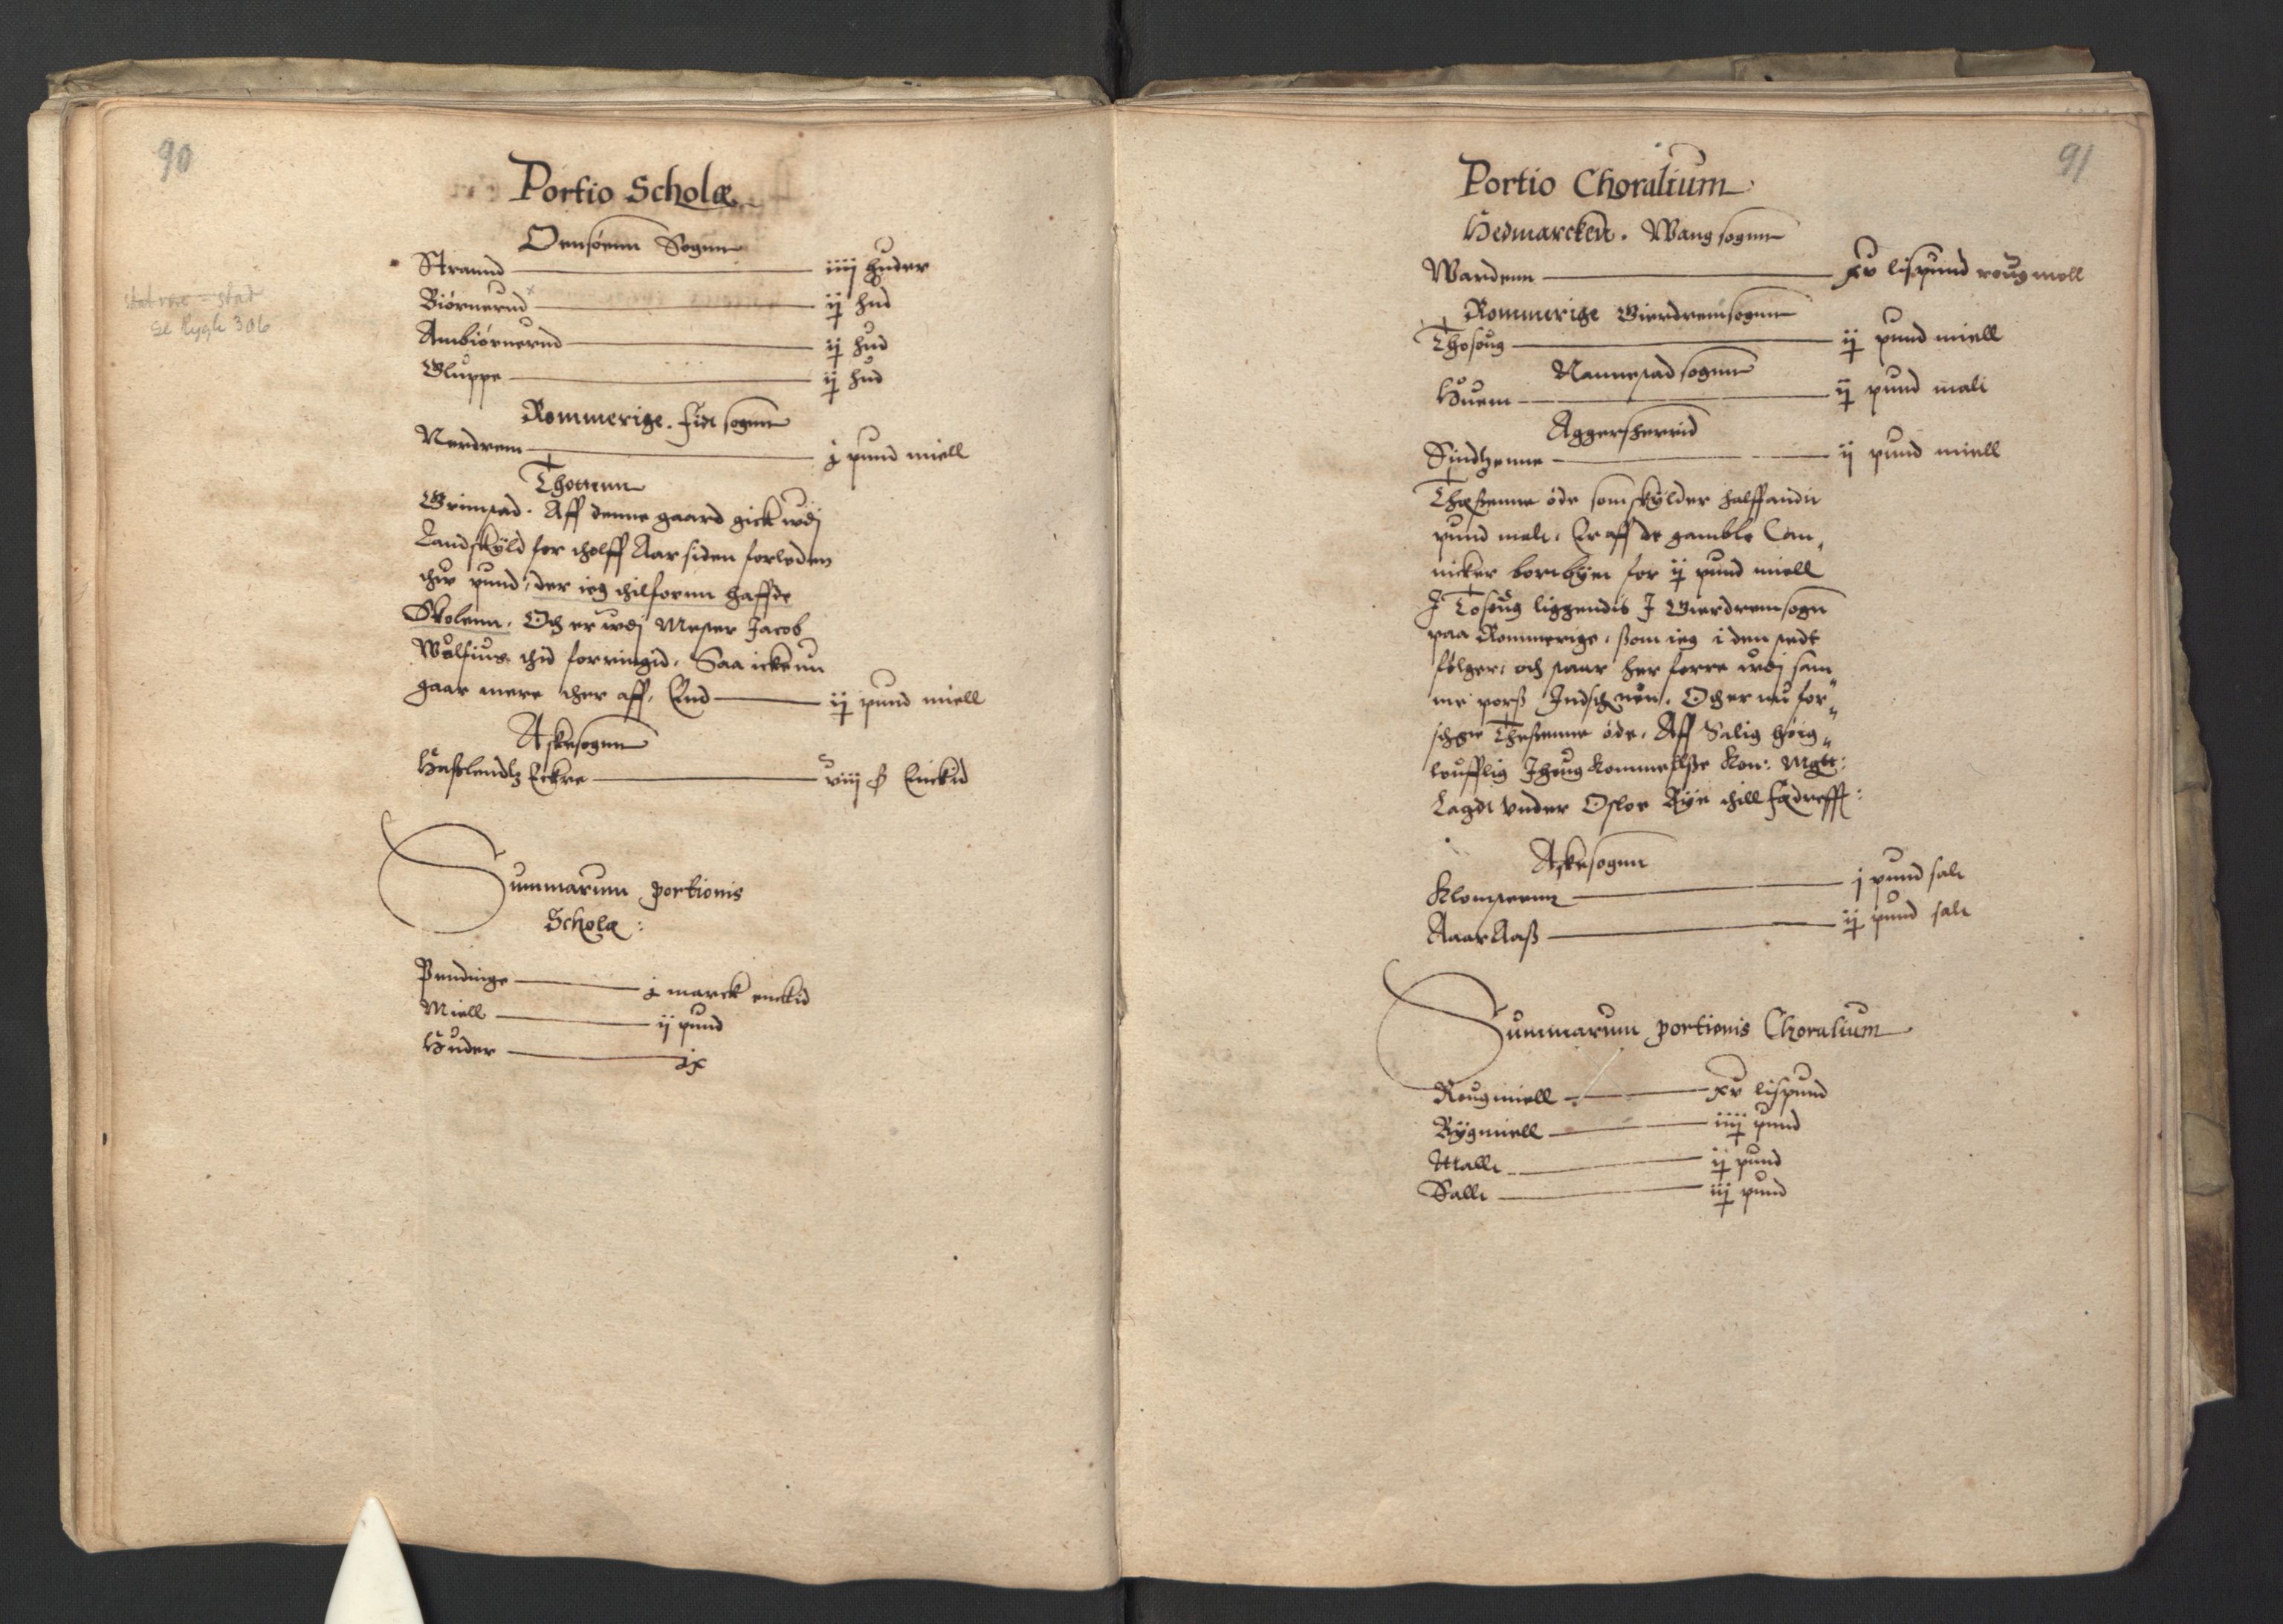 90
Portio Scholæ
Oensøenn Sogenn
Straund iiij huder
Biørnerud ij hud
Ambiørnerud ij hud
Gluppe ij hud
Rommerige. Fiæt sogenn
Nerdrem j pund miell
Thottenn
Grimstad. Aff denne gaard gick wdj
Landskyld for tholff Aar siden forleden
thw pund, der ieg thilforenn haffde
Skolenn. Och er wdj Mester Jacob
Wulfius tid forringid. Saa icke nu
gaar mere ther aff. End ij pund miell
Askesogenn
Eckre viij ß Enckid
Summarum portionis
Scholæ:
Pendinge j marck enckid
Miell ij pund
Huder ix
91
Portio Choralium
Hedmarcken. Wang sogenn
Wardenn xv lispund roug mell
Rommerige Gierdrem sogenn
Thosoug ij pund miell
Nannestad sogenn
Huem ij pund malt
Aggersherrid
Sindhenne ij pund miell
Thøstenne øde som skylder halffandit
pund malt. Er aff de gamble Can,
nicker bortbyttet for ij pund miell
J Tosoug liggendis J Gierdrem sogn
paa Rommerige, som ieg i den stedt
følger, och staar her førre wdj sam
me Och er nu for,,
schrne Thøstenne øde. Aff Salig høig,,
loufflig Ihougkommellsse Kon: Mgtt:
Lagdt vnder Osloe Bye thill Fædrefft:
Askesogenn
Klompenn j pund salt
AaarAass ij pund salt
Summarum portionis Choralium
Rougmiell xv lispund
Bygmiell iiij pund
Mallt ij pund
Sallt iij pund